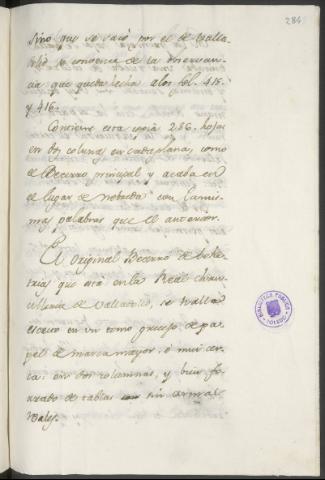 286
sino que se sacó por el de Valla-
dolid
que queda hecha a los fol. 415.
y 416.
Contiene esta copia 286. hojas
en dos colunas en cada plana, como
el Becerro principal y acaba en
el lugar de rebolleda con las mis-
mas palabras que el anterior.
El original Becerro de behe-
trias que está en la Real chanci-
lleria de Valladolid, se halla
escrito en un tomo grueso de pa-
pel de marca mayor,
en dos columnas, y bien fo-
rrado de tablas sin
BIBLIOTECA PUBLICA
TOLEDO